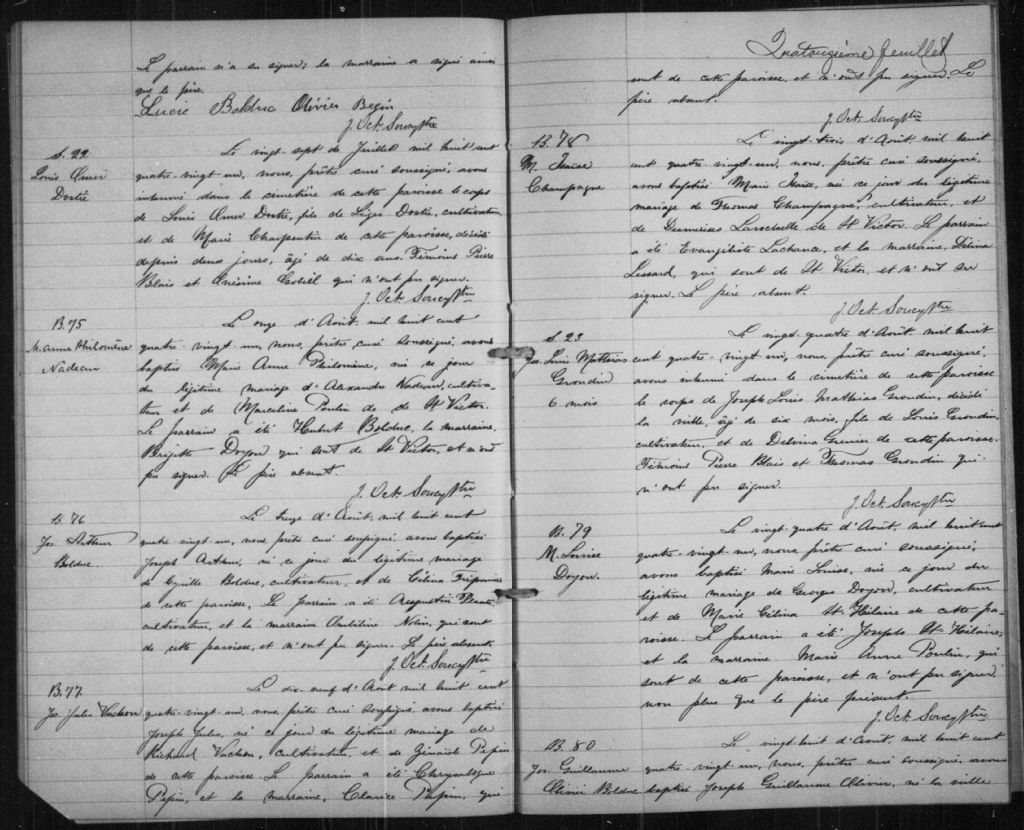 Le parrain n'a su signer; la marraine a signé ainsi
que le père.
Lucie Bolduc Olivier Begin
J. Oct. Soucy Ptre
S. 22
Louis Omer
Dostie
Le vingt-sept de Juillet mil huit cent
quatre-vingt-un, nous, prêtre curé soussigné, avons
inhumé dans le cimetière de cette paroisse le corps
de Louis Omer Dostie, fils de Léger Dostie, cultivateur
et de Marie Charpentier de cette paroisse, décédé
depuis deux jours, âgé de dix ans. Témoins Pierre
Blais et Onésime qui n'ont pu signer.
J. Oct. Soucy Ptre
B. 75
M. Anne Philomène
Nadeau
Le onze d'Août, mil huit cent
quatre-vingt-un, nous, prêtre curé soussigné, avons
baptisé Marie Anne Philomène, née ce jour
du légitime mariage d'Alexandre Nadeau, cultiva-
teur et de Marceline Poulin de de St Victor.
Le parrain a été Hubert Bolduc, la marraine,
Brigitte Doyon qui sont de St Victor, et n'ont
pu signer. Le père absent.
J. Oct. Soucy Ptre
B. 76
Jos. Arthur
Bolduc.
Le treize d'Août, mil huit cent
quatre-vingt-un, nous, prêtre curé soussigné avons baptisé
Joseph Arthur, né ce jour du légitime mariage
de Cyrille Bolduc, cultivateur, et de Célina
de cette paroisse. Le parrain a été Augustin
cultivateur, et la marraine Nolin, qui sont
de cette paroisse, et n'ont pu signer. Le père absent.
J. Oct. Soucy Ptre
B. 77
Jos. Jules Vachon
Le dix-neuf d'Août mil huit cent
quatre-vingt-un, nous, prêtre curé soussigné, avons baptisé
Joseph Jules, né ce jour du légitime mariage de
Richard Vachon, cultivateur et de Zénaïde Pepin
de cette paroisse. Le parrain a été Chrysologue
Pepin, et la marraine, Clarice Pepin, qui
Quatorzième feuillet
sont de cette paroisse, et n'ont pu signer. Le
père absent.
J. Oct. Soucy Ptre
B. 78
M.
Champagne
Le vingt-trois d'Août, mil huit
cent quatre-vingt-un, nous, prêtre curé soussigné,
avons baptisé Marie née ce jour du légitime
mariage de Thomas Champagne, cultivateur, et
de Larochelle de St Victor. Le parrain
a été Evangéliste Lachance, et la marraine, Délina
Lessard, qui sont de St Victor, et n'ont su
signer. Le père absent.
J. Oct. Soucy Ptre
S. 23
Jos. Louis Mathias
Grondin
6 mois
Le vingt-quatre d'Août, mil huit
cent quatre-vingt-un, nous, prêtre curé soussigné,
avons inhumé dans le cimetière de cette paroisse
le corps de Joseph Louis Mathias Grondin, décédé
la veille, âgé de six mois, fils de Louis Grondin,
cultivateur, et de Delvina Grenier de cette paroisse.
Témoins Pierre Blais et Thomas Grondin qui
n'ont pu signer.
J. Oct. Soucy Ptre
B. 79
M. Louise
Doyon.
Le vingt-quatre d'Août, mil huit cent
quatre-vingt-un, nous, prêtre curé soussigné,
avons baptisé Marie Louise, née ce jour du
légitime mariage de Georges Doyon, cultivateur
et de Marie Célina St-Hilaire de cette pa-
roisse. Le parrain a été Joseph St-Hilaire,
et la marraine Marie Anne Poulin, qui
sont de cette paroisse, et n'ont pu signer
non plus que le père présent.
J. Oct. Soucy Ptre
B. 80
Jos. Guillaume
Olivier Bolduc
Le vingt-huit d'Août, mil huit cent
quatre-vingt-un, nous, prêtre curé soussigné, avons
baptisé Joseph Guillaume Olivier, né la veille